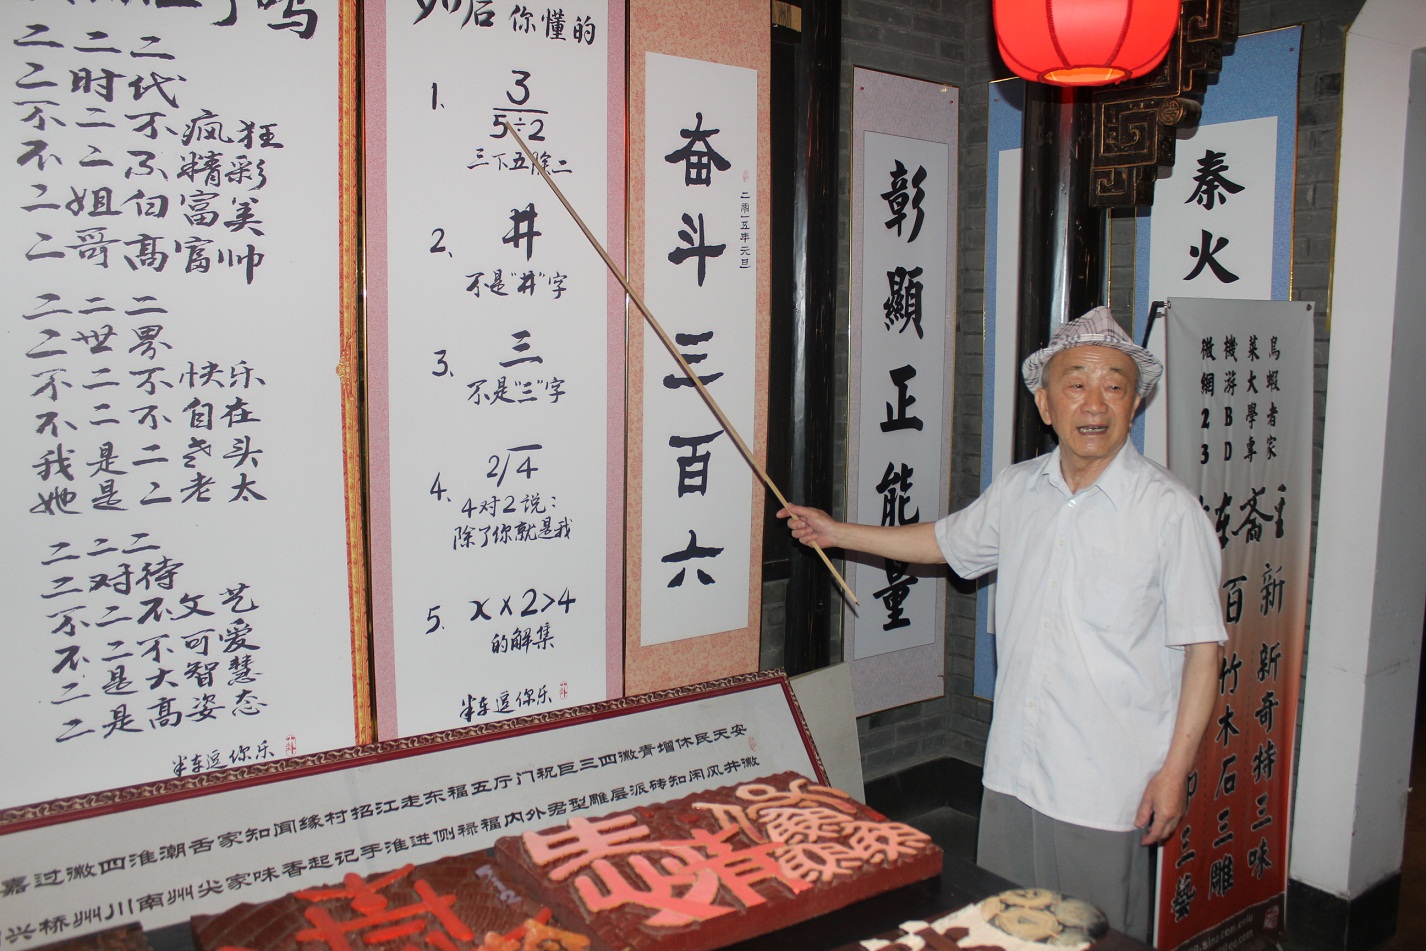 二二二
二时代
不二不疯狂
不二不精彩
二姐白富美
二哥高富帅
二二二
二世界
不二不快乐
不二不自在
我是二老头
她是二老太
二二二
二对待
不二不文艺
不二不可爱
二是大智慧
二是高姿态
半车逗你乐
你懂的
1、 3
5÷2
三下五除二
2、 井
不是"井"字
3、 三
不是"三"字
4、 2/4
4对2说:
除了你就是我
5、 x×2>4
的解集
半车逗你乐
奋斗三百六
二零一五年元旦
彰顯正能量
秦火
鳥蝦者家
菜大學專
機游BD
微網23
新新奇特三味
百竹木石三雕
三藝
嘉过徽四淮潮舌家知闻缘村招江走东福五厅门祝巨三四徽青增休民天安
兴桥州川南州尖家味香起记手淮进侧禄福内外君型雕层派砖知闲风井徽